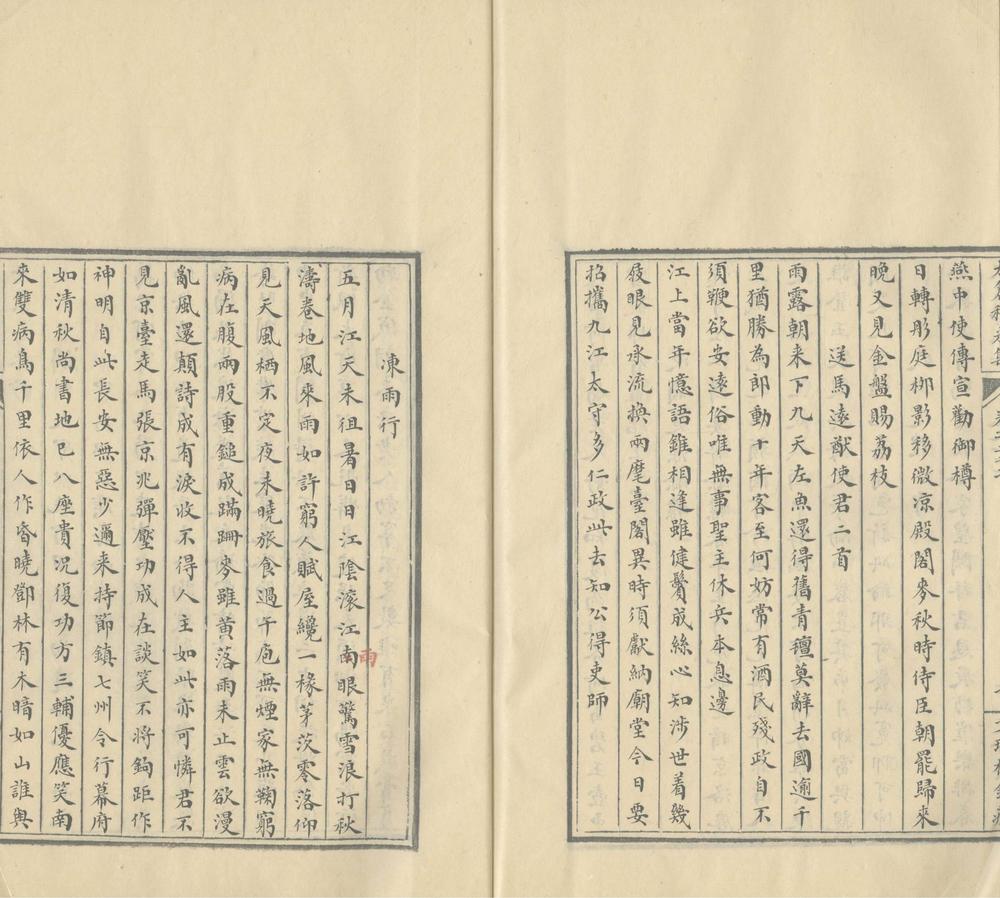 燕中使傳宣勸御樽
日轉彤庭栁影移微凉殿閣麥秋時侍臣朝罷歸來
晚又見金盤賜荔枝
送馬逺猷使君二首
雨露朝来下九天左魚還得舊青氊莫辭去國逾千
里猶勝為郎動十年客至何妨常有酒民殘政自不
須鞭欲安逺俗唯無事聖主休兵本息邊
江上當年憶語離相逢雖健鬢成絲心知涉世着幾
屐眼見承流換兩麾臺閣異時須獻納廟堂今日要
招攜九江太守多仁政此去知公得吏師
凍雨行
五月江天未徂暑日日江陰滚江南眼驚雪浪打秋
雨
濤卷地風來雨如許窮人賦屋纔一椽茅茨零落仰
見天風栖不定夜未曉旅食過午庖無煙家無鞠窮
病在腹兩股重鎚成蹣跚麥雖黄落雨未止雲欲漫
亂風還顛詩成有淚收不得人主如此亦可憐君不
見京臺走馬張京兆彈壓功成在談笑不將鉤距作
神明自此長安無惡少邇来持節鎮七州令行幕府
如清秋尚書地已八座貴况復功方三輔優應笑南
來雙病鳥千里依人作昏曉鄧林有木暗如山誰與